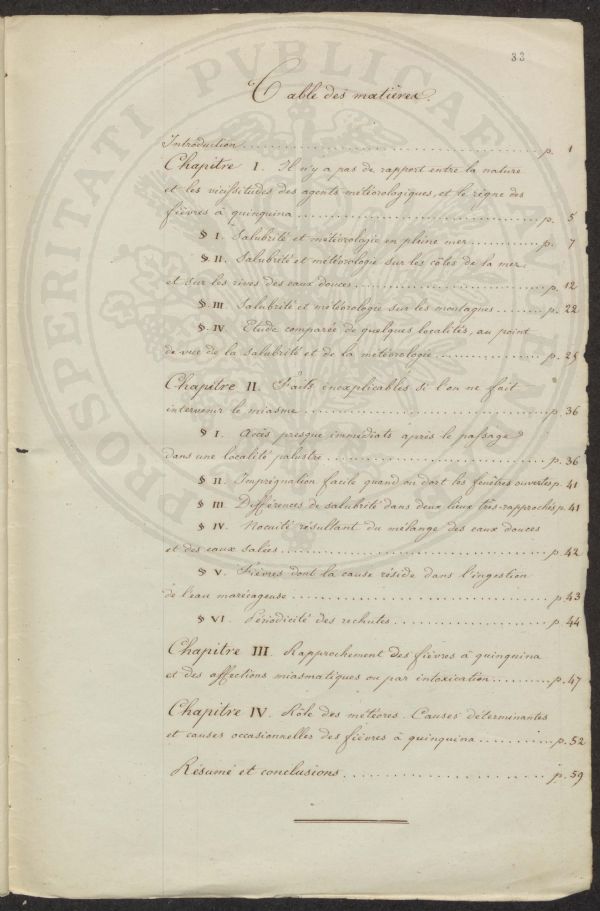 33
Table des matières.
Introduction . . . p. 1
Chapitre I. Il n'y a pas de rapport entre la nature
et les vicissitudes des agents météorologiques, et le règne des
fièvres à quinquina . . . p. 5
§ I. Salubrité et météorologie en pleine mer . . . p. 7
§ II. Salubrité et météorologie sur les côtes de la mer
et sur les rives des eaux douces . . . p. 12
§ III. Salubrité et météorologie sur les montagnes . . . p. 22
§ IV. Etude comparée de quelques localités, au point
de vue de la salubrité et de la météorologie . . . p. 25
Chapitre II. Faits inexplicables si l'on ne fait
intervenir le miasme . . . p. 36
§ I. Accès presque immédiats après le passage
dans une localité palustre . . . p. 36
§ II. Imprégnation facile quand on dort les fenêtres ouvertes p. 41
§ III. Différences de salubrité dans deux lieux très-rapprochés p. 41
§ IV. Nocuité résultant du mélange des eaux douces
et des eaux salées . . . p. 42
§ V. Fièvres dont la cause réside dans l'ingestion
de l'eau marécageuse . . . p. 43
§ VI. Périodicité des rechutes . . . p. 44
Chapitre III. Rapprochement des fièvres à quinquina
et des affections miasmatiques ou par intoxication . . . p. 47
Chapitre IV. Rôle des météores. Causes déterminantes
et causes occasionnelles des fièvres à quinquina . . . p. 52
Résumé et conclusions . . . p. 59
PROSPERITATI PUBLICAE